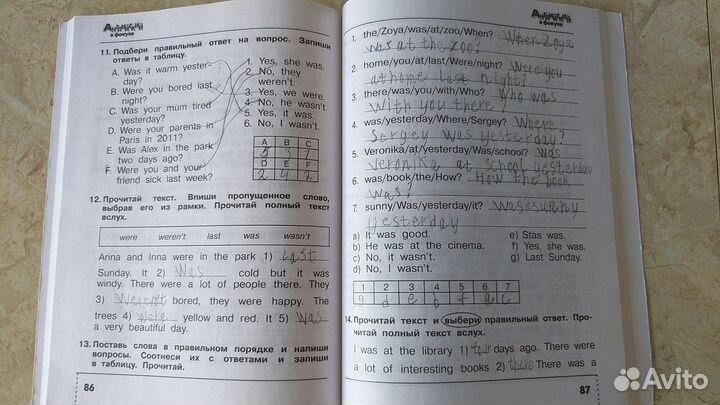 в фокусе
11. Подбери правильный ответ на вопрос. Запиши
ответы в таблицу.
A. Was it warm yester-
day?
B. Were you bored last
night?
C. Was your mum tired
yesterday?
D. Were your parents in
Paris in 2011?
E. Was Alex in the park
two days ago?
F. Were you and your
friend sick last week?
1. Yes, she was.
2. No, they
weren't.
3. Yes, we were.
4. No, he wasn't.
5. Yes, it was.
6. No, I wasn't.
A B C
5
D E F
2 4 2
12. Прочитай текст. Впиши пропущенное слово,
выбрав его из рамки. Прочитай полный текст
вслух.
were weren't last was wasn't
Arina and Inna were in the park 1) Last
Sunday. It 2) Was cold but it was
windy. There were a lot of people there. They
3) bored, they were happy. The
trees 4) were yellow and red. It 5) was
a very beautiful day.
13. Поставь слова в правильном порядке и напиши
вопросы. Соотнеси их с ответами и запиши
в таблицу. Прочитай.
86
в фокусе
1. the/Zoya/was/at/zoo/When? When Zoya
was at the zoo?
2. home/you/at/last/Were/night? Were you
at home last night?
3. there/was/you/with/Who? Who was
with you there?
4. was/yesterday/Where/Sergey? Where
Sergey was yesterday?
5. Veronika/at/yesterday/Was/school? Was
Veronika at school yesterday
6. was/book/the/How? How the book
was?
7. sunny/Was/yesterday/it? Was sunny
yesterday
a) It was good.
b) He was at the cinema.
c) No, it wasn't.
d) No, I wasn't.
e) Stas was.
f) Yes, she was.
g) Last Sunday.
1 2 3 4 5 6 7
g d e b f a c
14. Прочитай текст и выбери правильный ответ. Про-
читай полный текст вслух.
I was at the library 1) four days ago. There were
a lot of interesting books 2) There was a
87
Avito